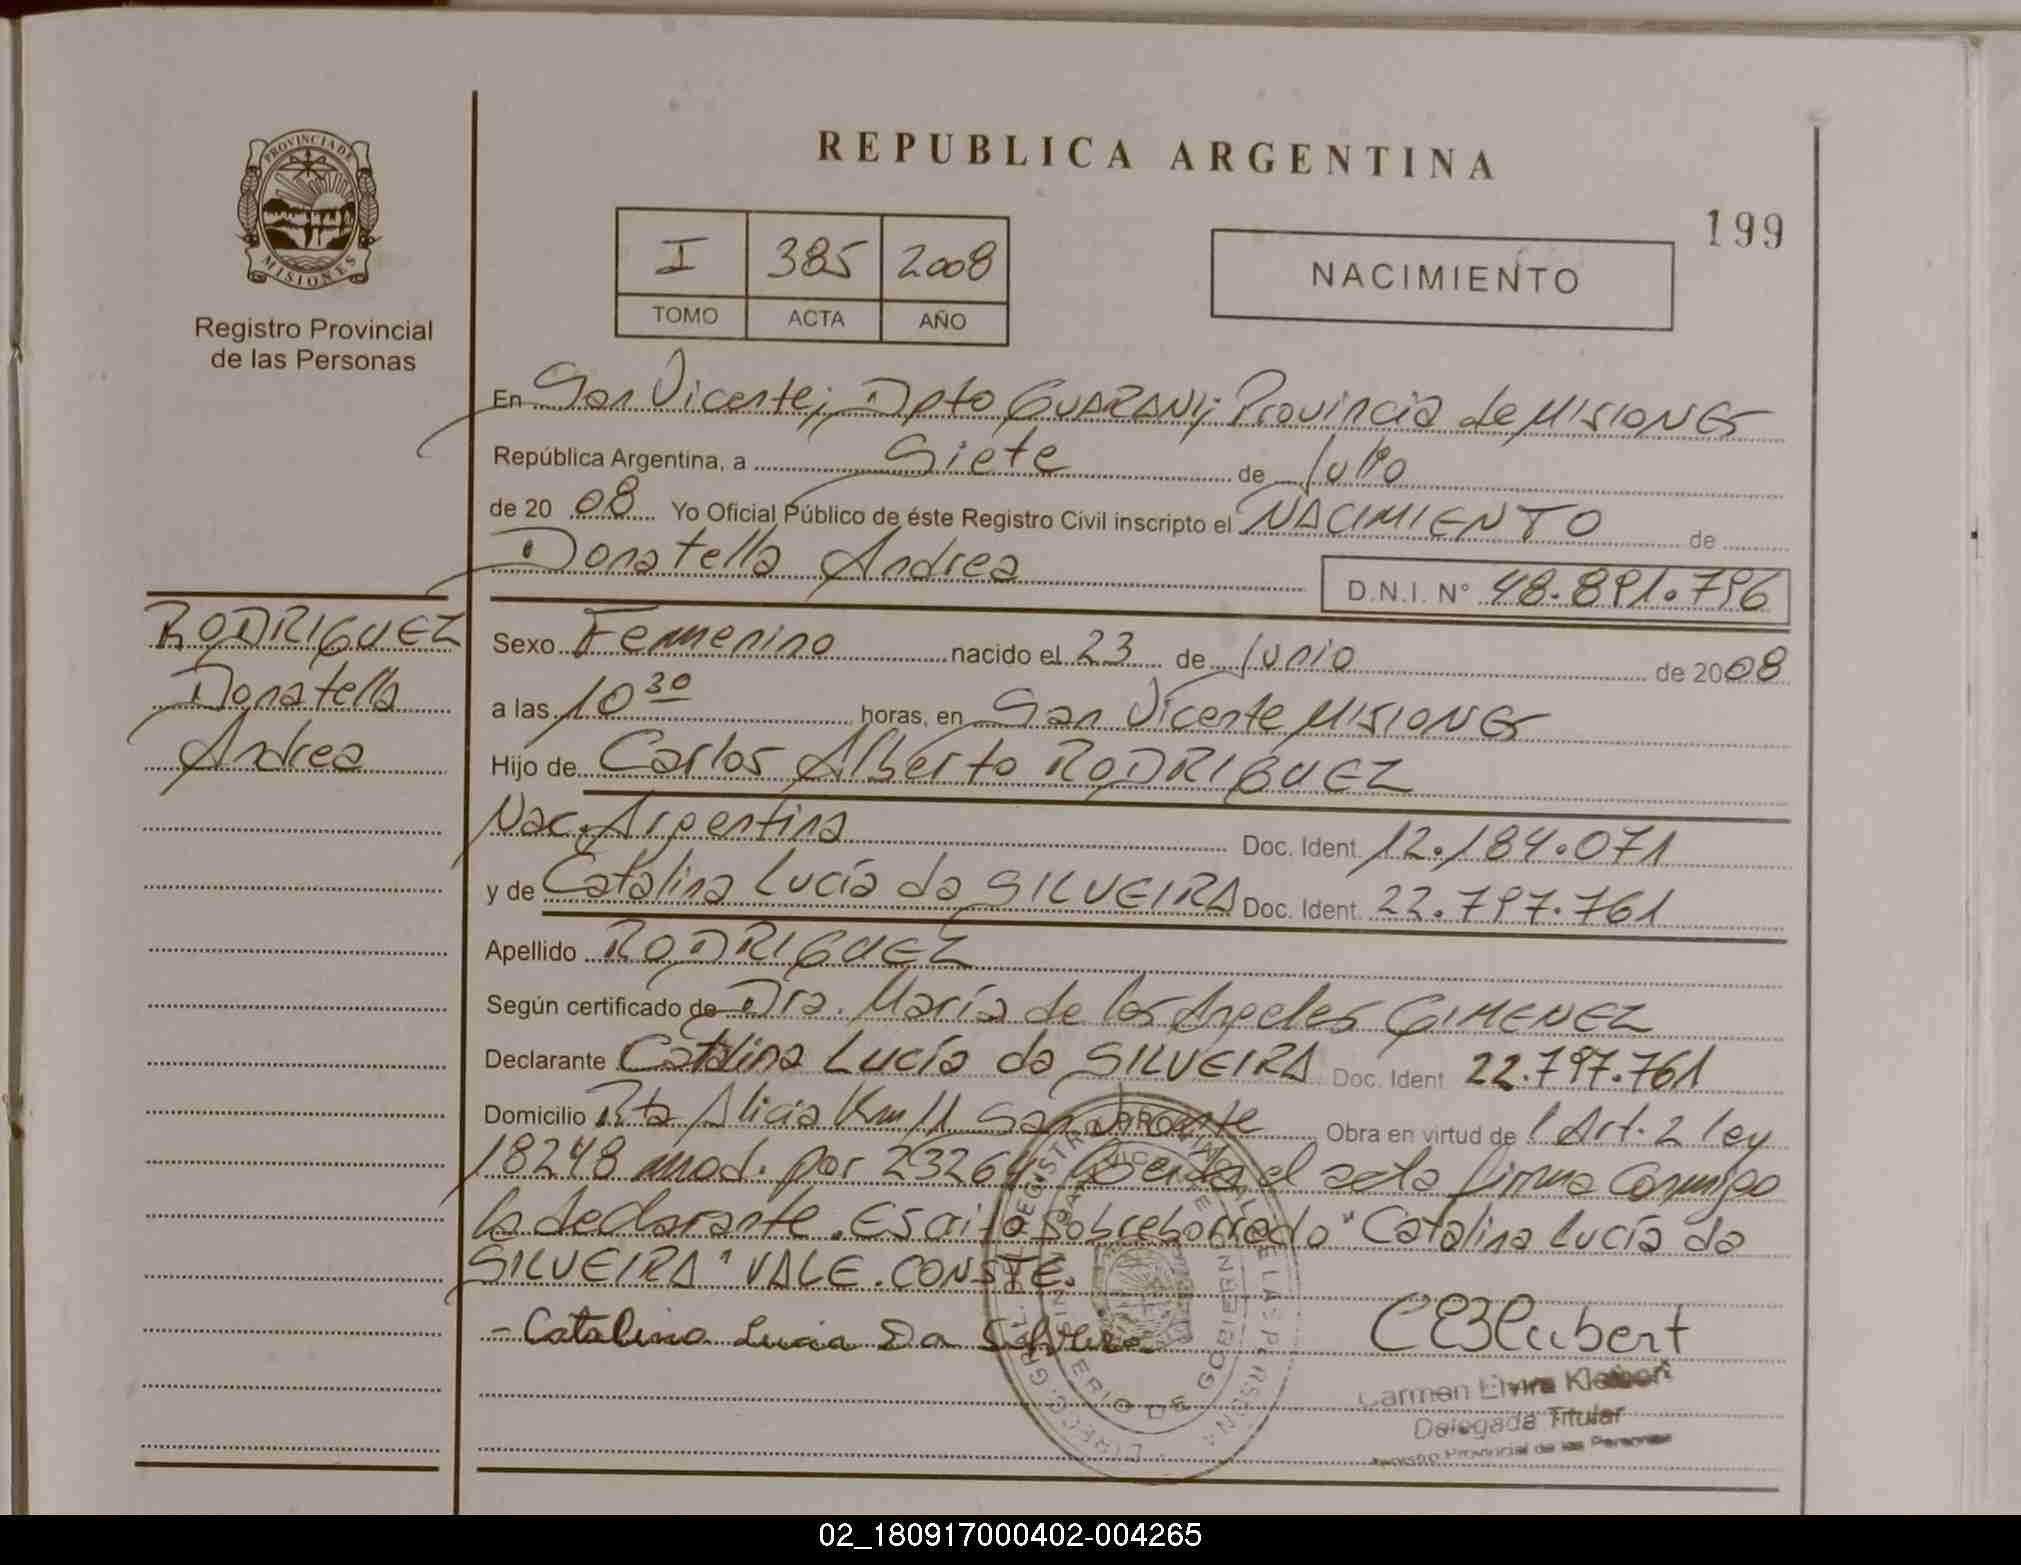 REPUBLICA ARGENTINA
199
PROVINCIA DE
MISIONES
Registro Provincial
de las Personas
I 385 2008
TOMO ACTA AÑO
NACIMIENTO
En San Vicente; Dpto GUARANI; Provincia de MISIONES
República Argentina, a Siete de Julio
de 2008 Yo Oficial Público de éste Registro Civil inscripto el NACIMIENTO de
Donatella Andrea D.N.I. N° 48.891.796
RODRIGUEZ
Donatella
Andrea
Sexo Femenino nacido el 23 de Junio de 2008
a las 10 30 horas, en San Vicente MISIONES
Hijo de Carlos Alberto RODRIGUEZ
Nac. Argentina Doc. Ident. 12.184.071
y de Catalina Lucía da SILVEIRA Doc. Ident. 22.797.761
Apellido RODRIGUEZ
Según certificado de Dra. María de los Angeles GIMENEZ
Declarante Catalina Lucía da SILVEIRA Doc. Ident 22.797.761
Domicilio Rta Alicia Km 11 San Vicente Obra en virtud de l Art. 2 ley
18248 mod. por 23264 el acta firma conmigo
la declarante. Escrito sobreborrado "Catalina Lucía da
SILVEIRA" VALE. CONSTE.
- Catalina Lucia Da Silveira
Carmen Elvira Kleibert
Delegada Titular
Registro Provincial de las Personas
02_180917000402-004265